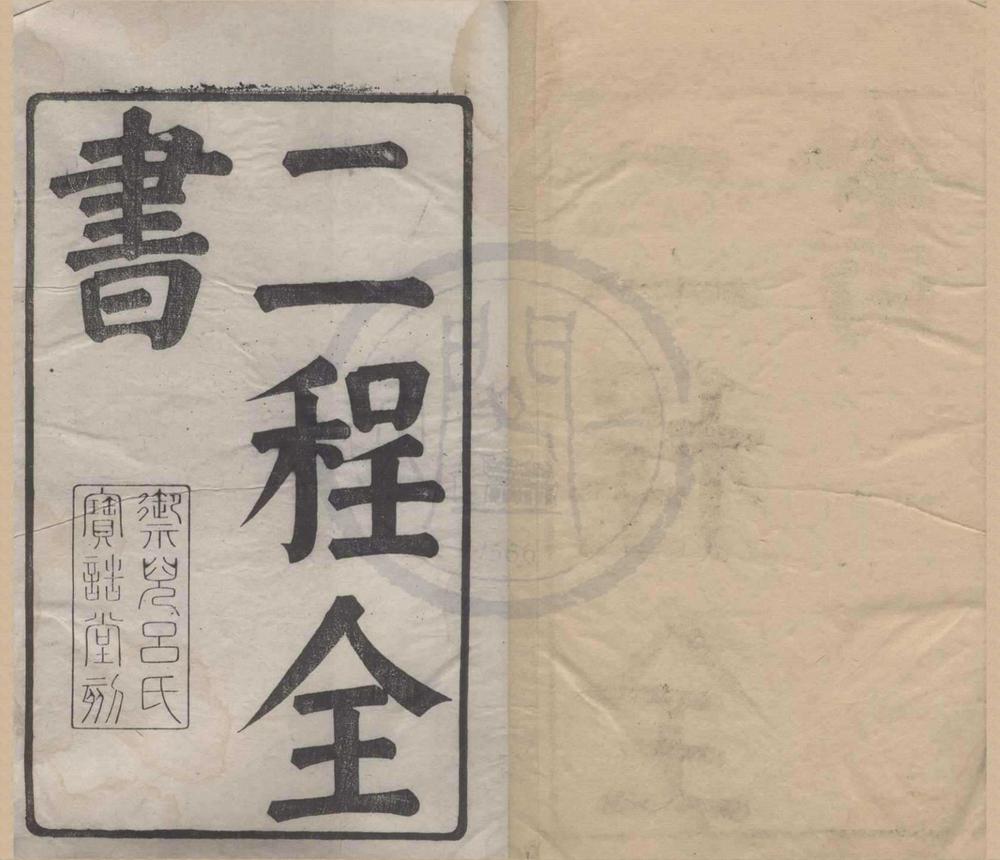 二程全
書
御兒呂氏
寶誥堂刻
1566